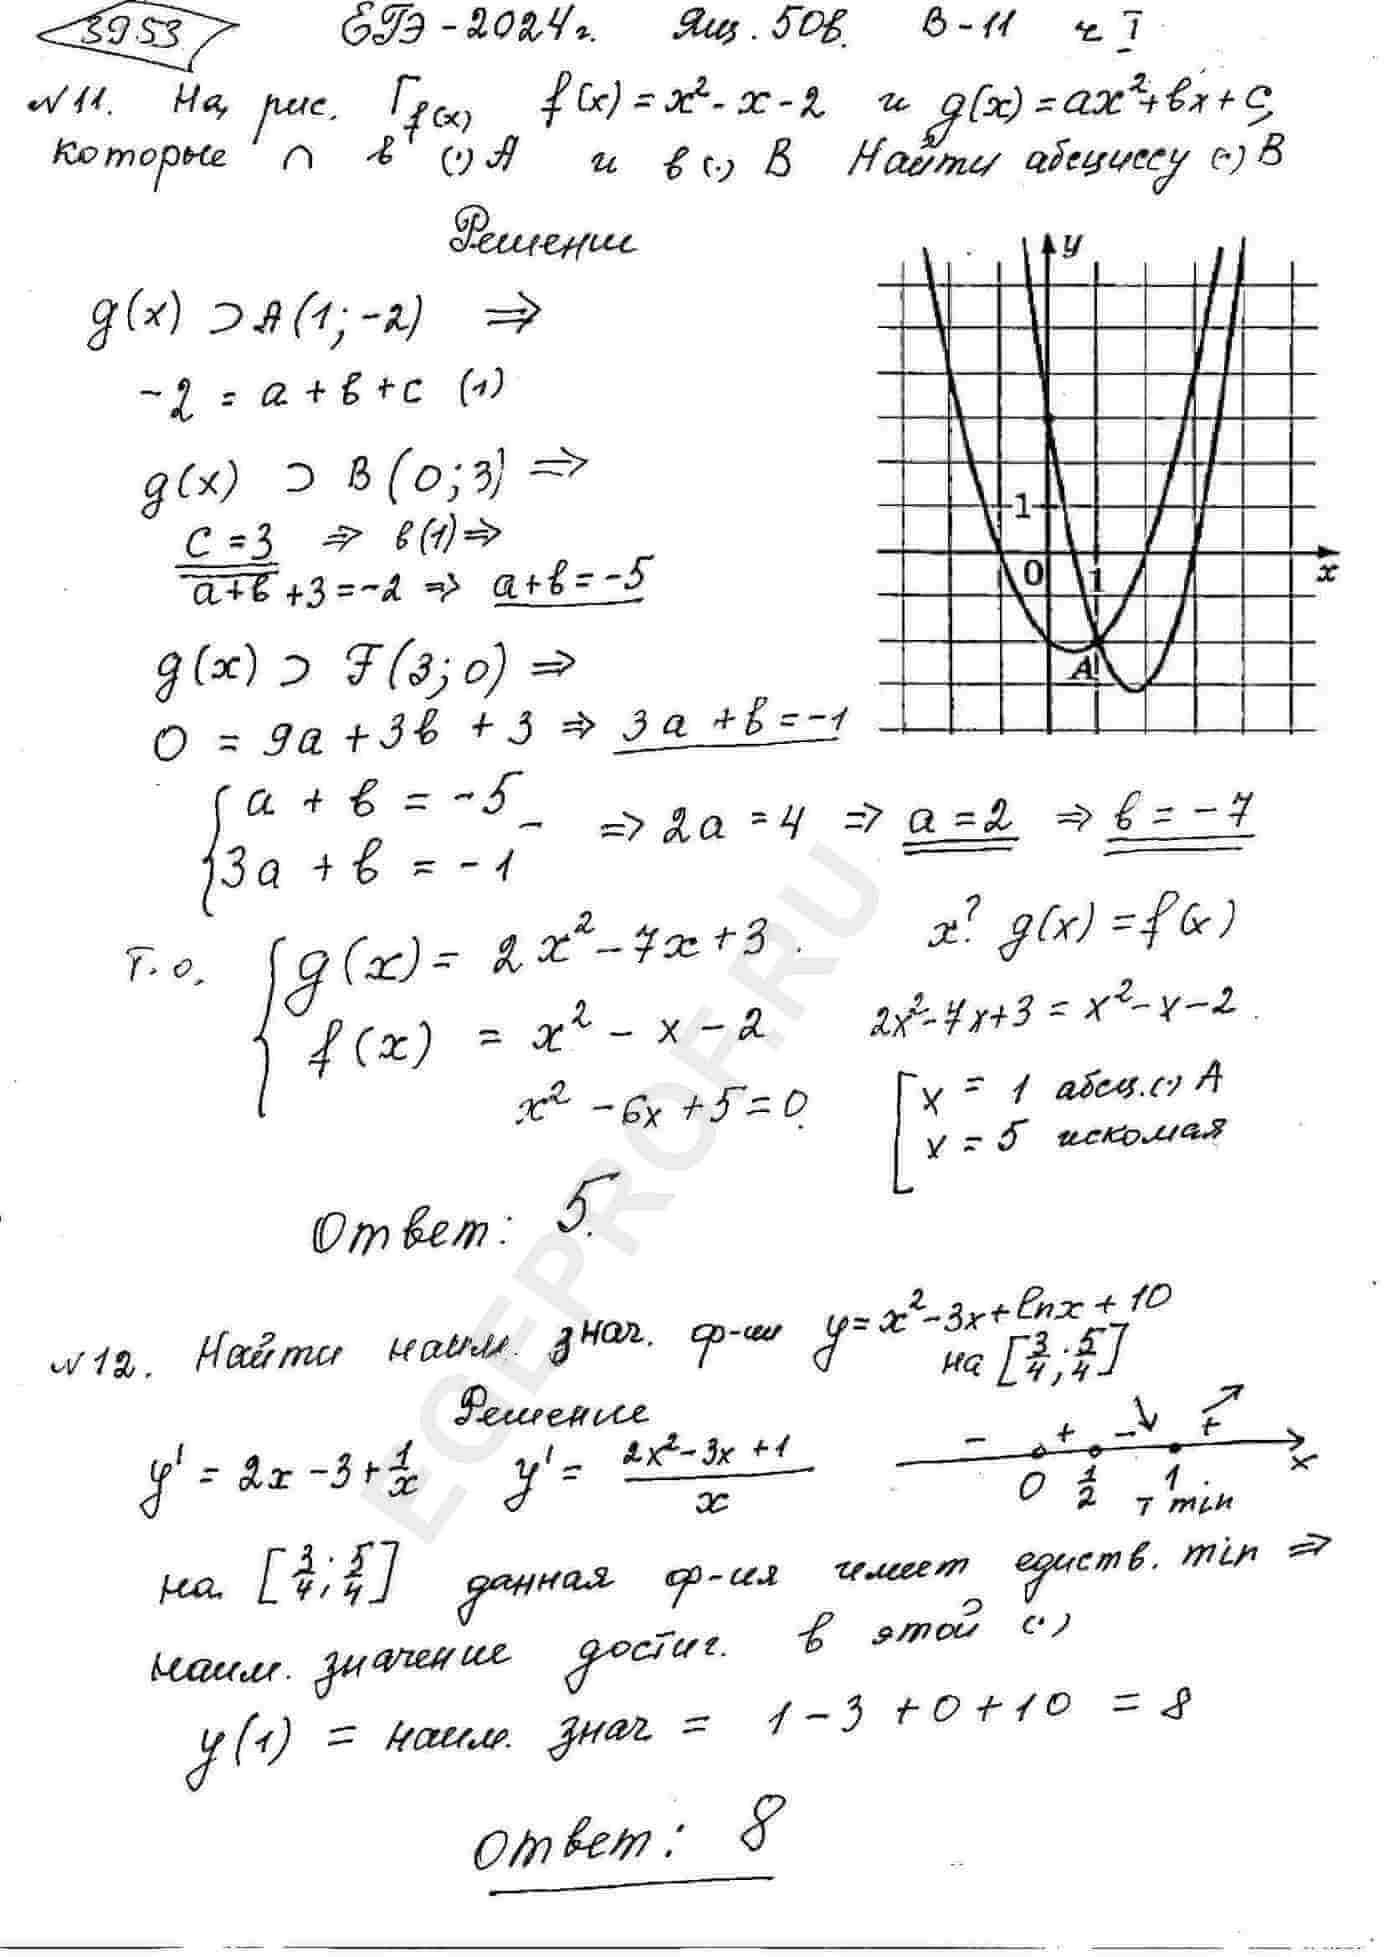 3953 ЕГЭ-2024г. Ящ. 50в. В-11 ч I
№11. На рис. Г f(x) f(x) = x² - x - 2 и g(x) = ax² + bx + c,
которые ∩ в (·) A и в (·) B Найти абсциссу (·) B
Решение
g(x) ⊃ A(1; -2) ⇒
-2 = a + b + c (1)
g(x) ⊃ B(0; 3) ⇒
c = 3 ⇒ в(1) ⇒
a+b+3 = -2 ⇒ a+b = -5
g(x) ⊃ F(3; 0) ⇒
0 = 9a + 3b + 3 ⇒ 3a + b = -1
y
1
0 1 x
A
{ a + b = -5
3a + b = -1 - ⇒ 2a = 4 ⇒ a = 2 ⇒ b = -7
Т.о. { g(x) = 2x² - 7x + 3.
f(x) = x² - x - 2
x² - 6x + 5 = 0.
x? g(x) = f(x)
2x² - 7x + 3 = x² - x - 2.
[ x = 1 абсц. (·) A
x = 5 искомая
Ответ: 5.
№12. Найти наим. знач. ф-ии y = x² - 3x + lnx + 10
на [3/4; 5/4]
Решение
y' = 2x - 3 + 1/x y' = (2x² - 3x + 1)/x
- + - ↘ + ↗
0 1/2 1 x
т min
на [3/4; 5/4] данная ф-ия имеет единств. min ⇒
наим. значение достиг. в этой (·)
y(1) = наим. знач = 1 - 3 + 0 + 10 = 8
Ответ: 8
EGEPROF.RU